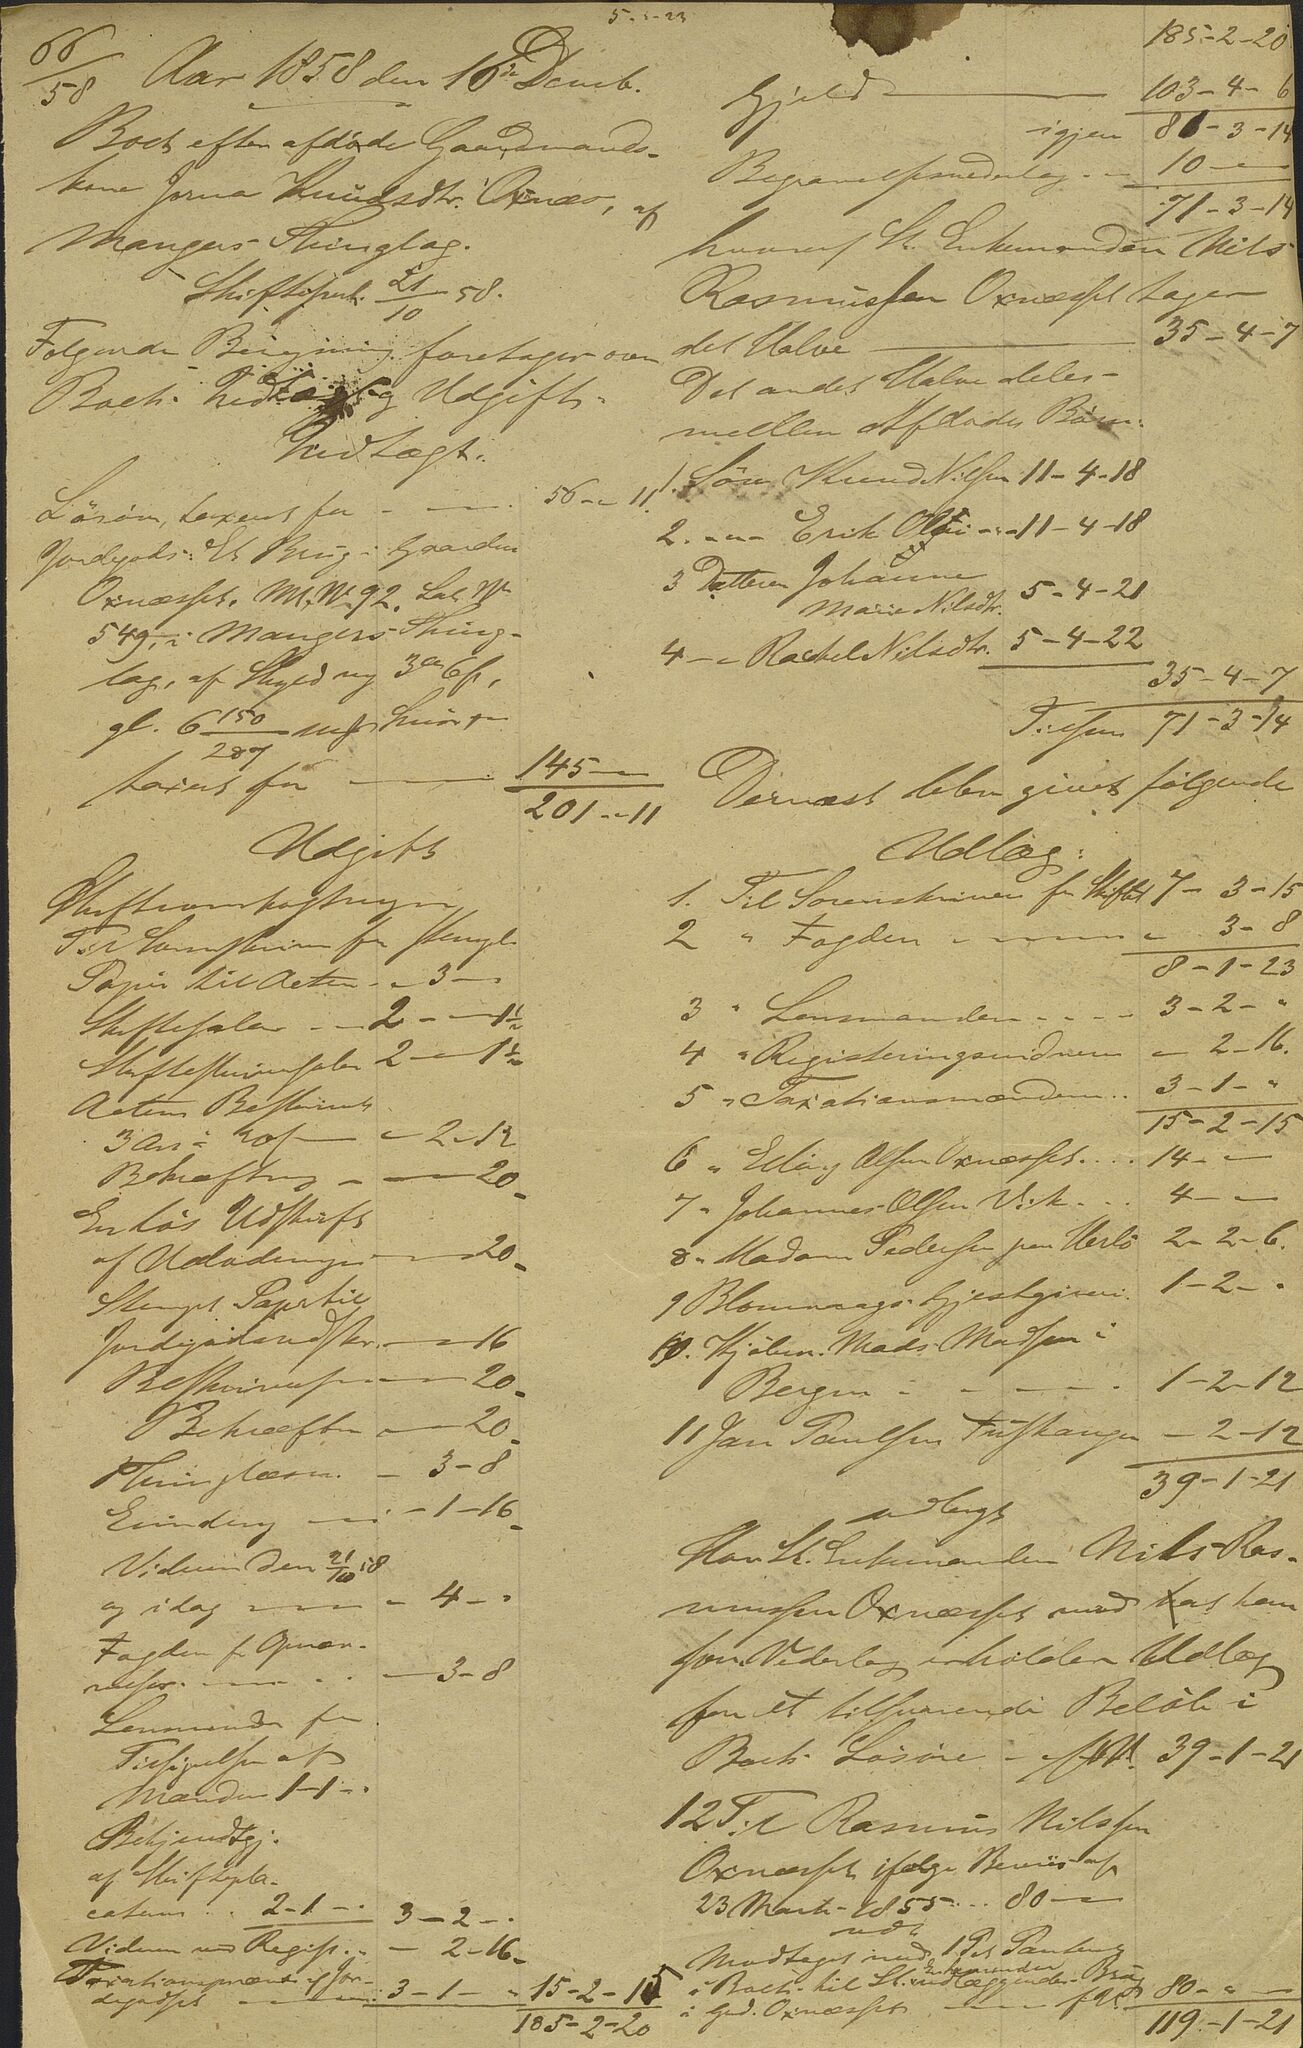 5-1-23
66/58 Aar 1858 den 16de Decmb.
Boet efter afdøde Gaardmands-
kone Jorina Knudsdtr. Oxnæs, af
Mangers Thinglag.
Skiftepret. 21/10 58.
Følgende Beregning foretages over
Boets Indtægt og Udgift.
Indtægt.
Løsøre, taxeret for - - 56 - " 11
Jordegods: Et Brug i Gaarden
Oxnæsset. Mt. No 92. Løb. No
549, i Mangers Thing-
lag, af Skyld ny 3 6 s,
gl. 6 150/287 mrk Smør
taxeret for 145 -
201 - " 11
Udgift
Skifteomkostninger
Til Sorenskriveren for Stempl.
Papir til Acten - " 3 -
Skiftesalær - 2 - " 1½
Skifteskriversalær 2 - 1½
Actens Beskrivelse
3 Ark à - " 2 - 12
Bekræftning - 20
En løs Udskrift
af Udlodningen - 20
Stempl. Papir til
Jordegodsudskr. - 16
Beskrivelse - 20
Bekræftn - 20
Thinglæsn. - 3 - 8
Einding - 1 - 16
Vidnerne den 21/10 58
og idag - 4 - "
Fogden for
- 3 - 8
Lensmanden for
Tilsigelse af
Mændene 1 - 1 - "
Bekjendtgj.
af Skiftepla-
caten 2 - 1 - " 3 - 2 - "
Vidnerne ved Regist. - 2 - 16
Taxationsmænd af Jor-
degodset 3 - 1 - " 15 - 2 - 15
185 - 2 - 20
185 - 2 - 20
Gjeld 103 - 4 - 6
igjen 81 - 3 - 14
Begravelsesvederlag 10 -
71 - 3 - 14
hvoraf St. Enkemanden Nils
Rasmussen Oxnæsset tager
det Halve 35 - 4 - 7
Det andet Halve deles
mellem Afdødes Børn:
1. Søn Knud Nilsen 11 - 4 - 18
2. - " - Erik Olai - 11 - 4 - 18
3 Datteren Johanne
Marie Nilsdtr. 5 - 4 - 21
4 - " Rachel Nilsdtr. 5 - 4 - 22
35 - 4 - 7
Tilsam 71 - 3 - 14
Dernæst blev givet følgende
Udlæg:
1. Til Sorenskriveren for Skiftet 7 - 3 - 15
2 " Fogden " 3 - 8
8 - 1 - 23
3 " Lensmanden 3 - 2 - "
4 " Registreringsvidnerne - 2 - 16.
5 " Taxationsmændene 3 - 1 - "
15 - 2 - 15
6 " Elling Olsen Oxnæsset 14 - -
7 " Johannes Olsen Vik 4 - -
8 " Madam Pedersen paa Herlø 2 - 2 - 6.
9 Blomvaags Gjestgiveri. 1 - 2 - "
10. Kjøbm. Mads Madsen i
Bergen 1 - 2 - 12
11 Jan Paulsen Tufthaugen - 2 - 12
39 - 1 - 21
udlagt
Har St. Enkemanden Nils Ras-
mussen Oxnæsset mod at han
for Vederlag erholder Udlæg
for et tilsvarende Beløb i
Boets Løsøre - 39 - 1 - 21
12 Til Rasmus Nilssen
Oxnæsset ifølge Beviis af
23 Marts 1855 80 -
udt
Modtaget med 1 Pr. Panteret
i Boets til St. Enkemanden udlæggende Brug
i Grd. Oxnæsset 80 - " -
119 - 1 - 21